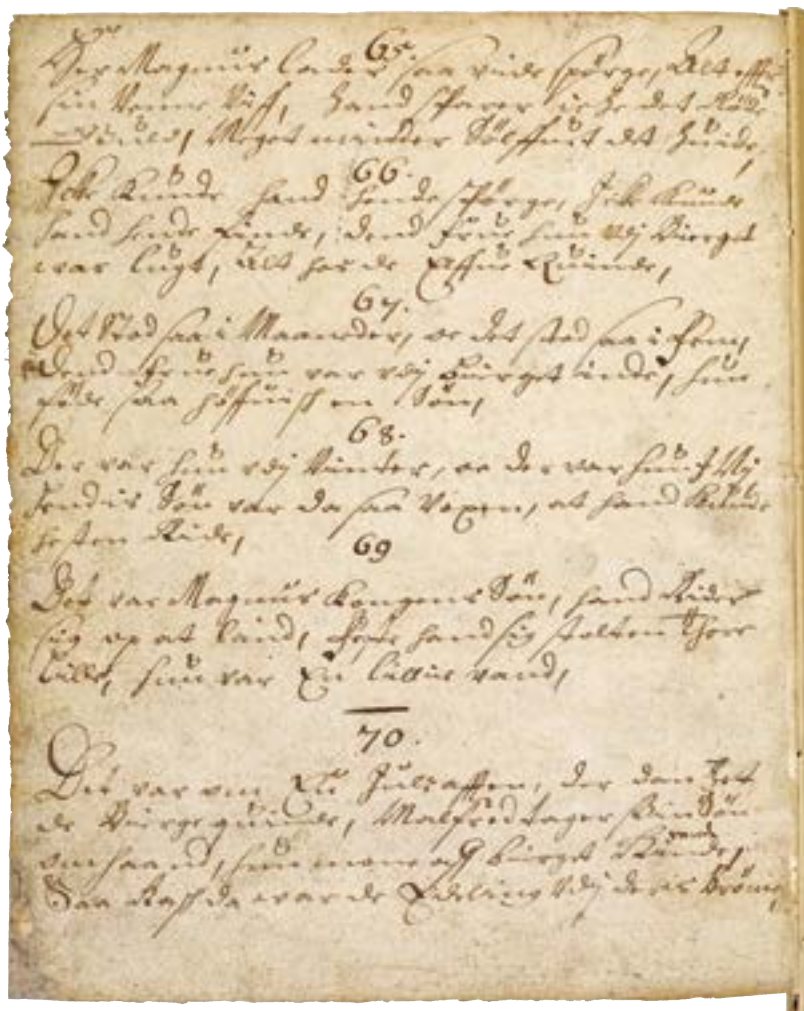 65.
Her Magnus lader saa vide spörge, Alt effter
sin Venne Viff, hand sparer icke det Röde
Guld, Meget minder Sölffuet det huide,
66.
Icke kunde hand hende spörge, Icke kunde
hand hende finde, dend frue hun vdj bierget
war lugt, alt hos de Elffue Quinde,
67.
Det stod saa i Maaneder, oc det stod saa i fem,
dend frue hun var vdj bierget inde, hun
föde saa höffuisk en Sön,
68.
Der var hun vdj Vinter, oc der var hun I
hendis Sön var da saa Voxen, at hand kunde
hesten Ride,
69
Det var Magnus kongens Sön, hand Rider
sig op at land, feste hand sig stalten Thor
lille, hun var En lilie vand,
70.
Det var om En Juleafften, der dantzet
de bierge quinde, Malfred tager sin Sön
om haand, hun mone aff bierget Rinde,
Saa Rask da war de Edeling vdj deris Brönie,